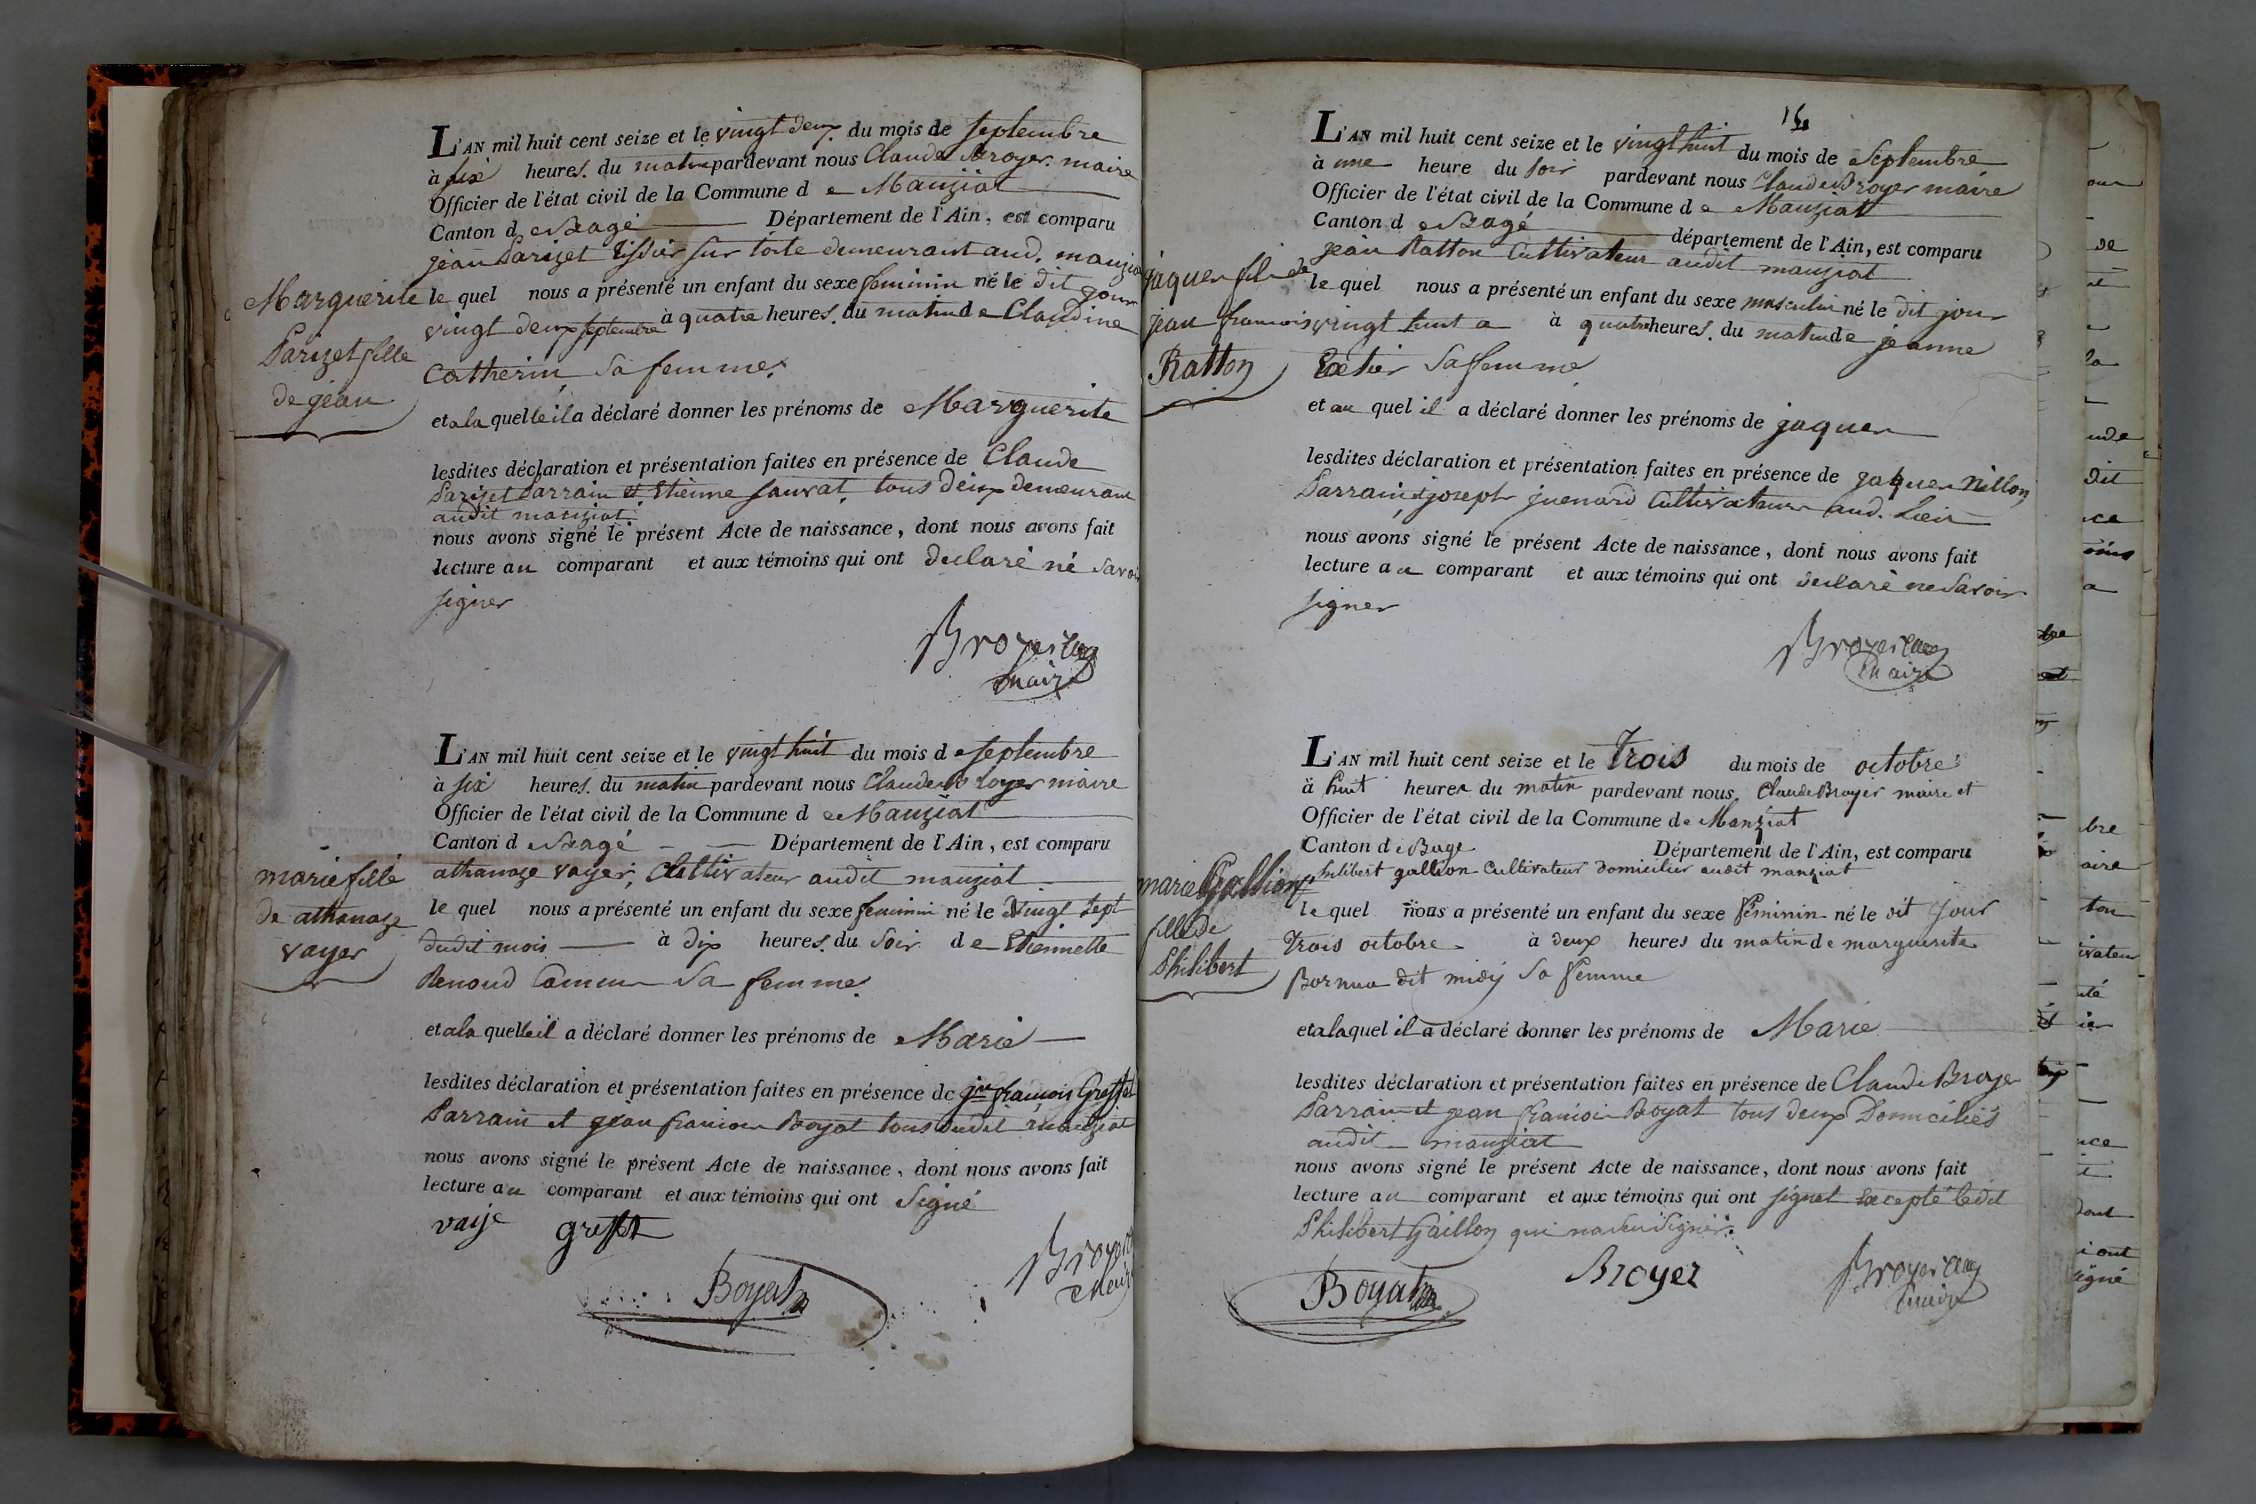 L'AN mil huit cent seize et le vingt deux du mois de septembre
à six heures du matin pardevant nous Claude Broyer maire
Officier de l'état civil de la Commune de Manziat
Canton de Bagé Département de l'Ain, est comparu
jean Parizet tissier sur toile demeurant aud. manziat
Marguerite
Parizet fille
de jean
le quel nous a présenté un enfant du sexe feminin né le dit jour
vingt deux septembre à quatre heures du matin de Claudine
Catherin sa femme
et a la quelle il a déclaré donner les prénoms de Marguerite
lesdites déclaration et présentation faites en présence de Claude
Parizet Parrain et Etienne sauvat tous deux demeurant
audit manziat
nous avons signé le présent Acte de naissance, dont nous avons fait
lecture au comparant et aux témoins qui ont declaré né savoir
signer
Broyer
maire
L'AN mil huit cent seize et le vingt huit du mois de septembre
à six heures du matin pardevant nous Claude Broyer maire
Officier de l'état civil de la Commune de Manziat
Canton de Bagé Département de l'Ain, est comparu
athanaze vayer, Cultivateur audit manziat
marie fille
de athanaze
vayer
le quel nous a présenté un enfant du sexe feminin né le vingt sept
dudit mois à dix heures du soir de Etiennette
Renoud Camu sa femme
et a la quelle il a déclaré donner les prénoms de Marie
lesdites déclaration et présentation faites en présence de jn françois Greffet
Parrain et jean francois Boyat tous dudit manziat
nous avons signé le présent Acte de naissance, dont nous avons fait
lecture au comparant et aux témoins qui ont signé
vaije greffet
Boyat
Broyer
maire
L'AN mil huit cent seize et le vingt huit du mois de septembre
à une heure du soir pardevant nous Claude Broyer maire
Officier de l'état civil de la Commune de Manziat
Canton de Bagé département de l'Ain, est comparu
jean Ratton Cultivateur audit manziat
jaques fils de
jean francois
Ratton
le quel nous a présenté un enfant du sexe masculin né le dit jour
vingt huit à quatre heures du matin de jeanne
sa femme
et au quel il a déclaré donner les prénoms de jaques
lesdites déclaration et présentation faites en présence de jaques Nillon
Parrain et joseph juenard Cultivateurs aud. Lieu
nous avons signé le présent Acte de naissance, dont nous avons fait
lecture au comparant et aux témoins qui ont declaré ne savoir
signer
Broyer
maire
L'AN mil huit cent seize et le Trois du mois de octobre
à huit heures du matin pardevant nous Claude Broyer maire et
Officier de l'état civil de la Commune de Manziat
Canton de Bage Département de l'Ain, est comparu
philibert gallion Cultivateur domicilier audit manziat
marie Gallion
fille de
Philibert
le quel nous a présenté un enfant du sexe Féminin né le dit Jour
Trois octobre à deux heures du matin de marguerite
Bornua dit midy sa Femme
et a la quel il a déclaré donner les prénoms de Marie
lesdites déclaration et présentation faites en présence de Claude Broyer
Parrain et jean francois Boyat tous deux Domiciliés
audit manziat
nous avons signé le présent Acte de naissance, dont nous avons fait
lecture au comparant et aux témoins qui ont signet Excepté ledit
Philibert Gaillon qui na seu Signer
Boyat
Broyer
Broyer
maire